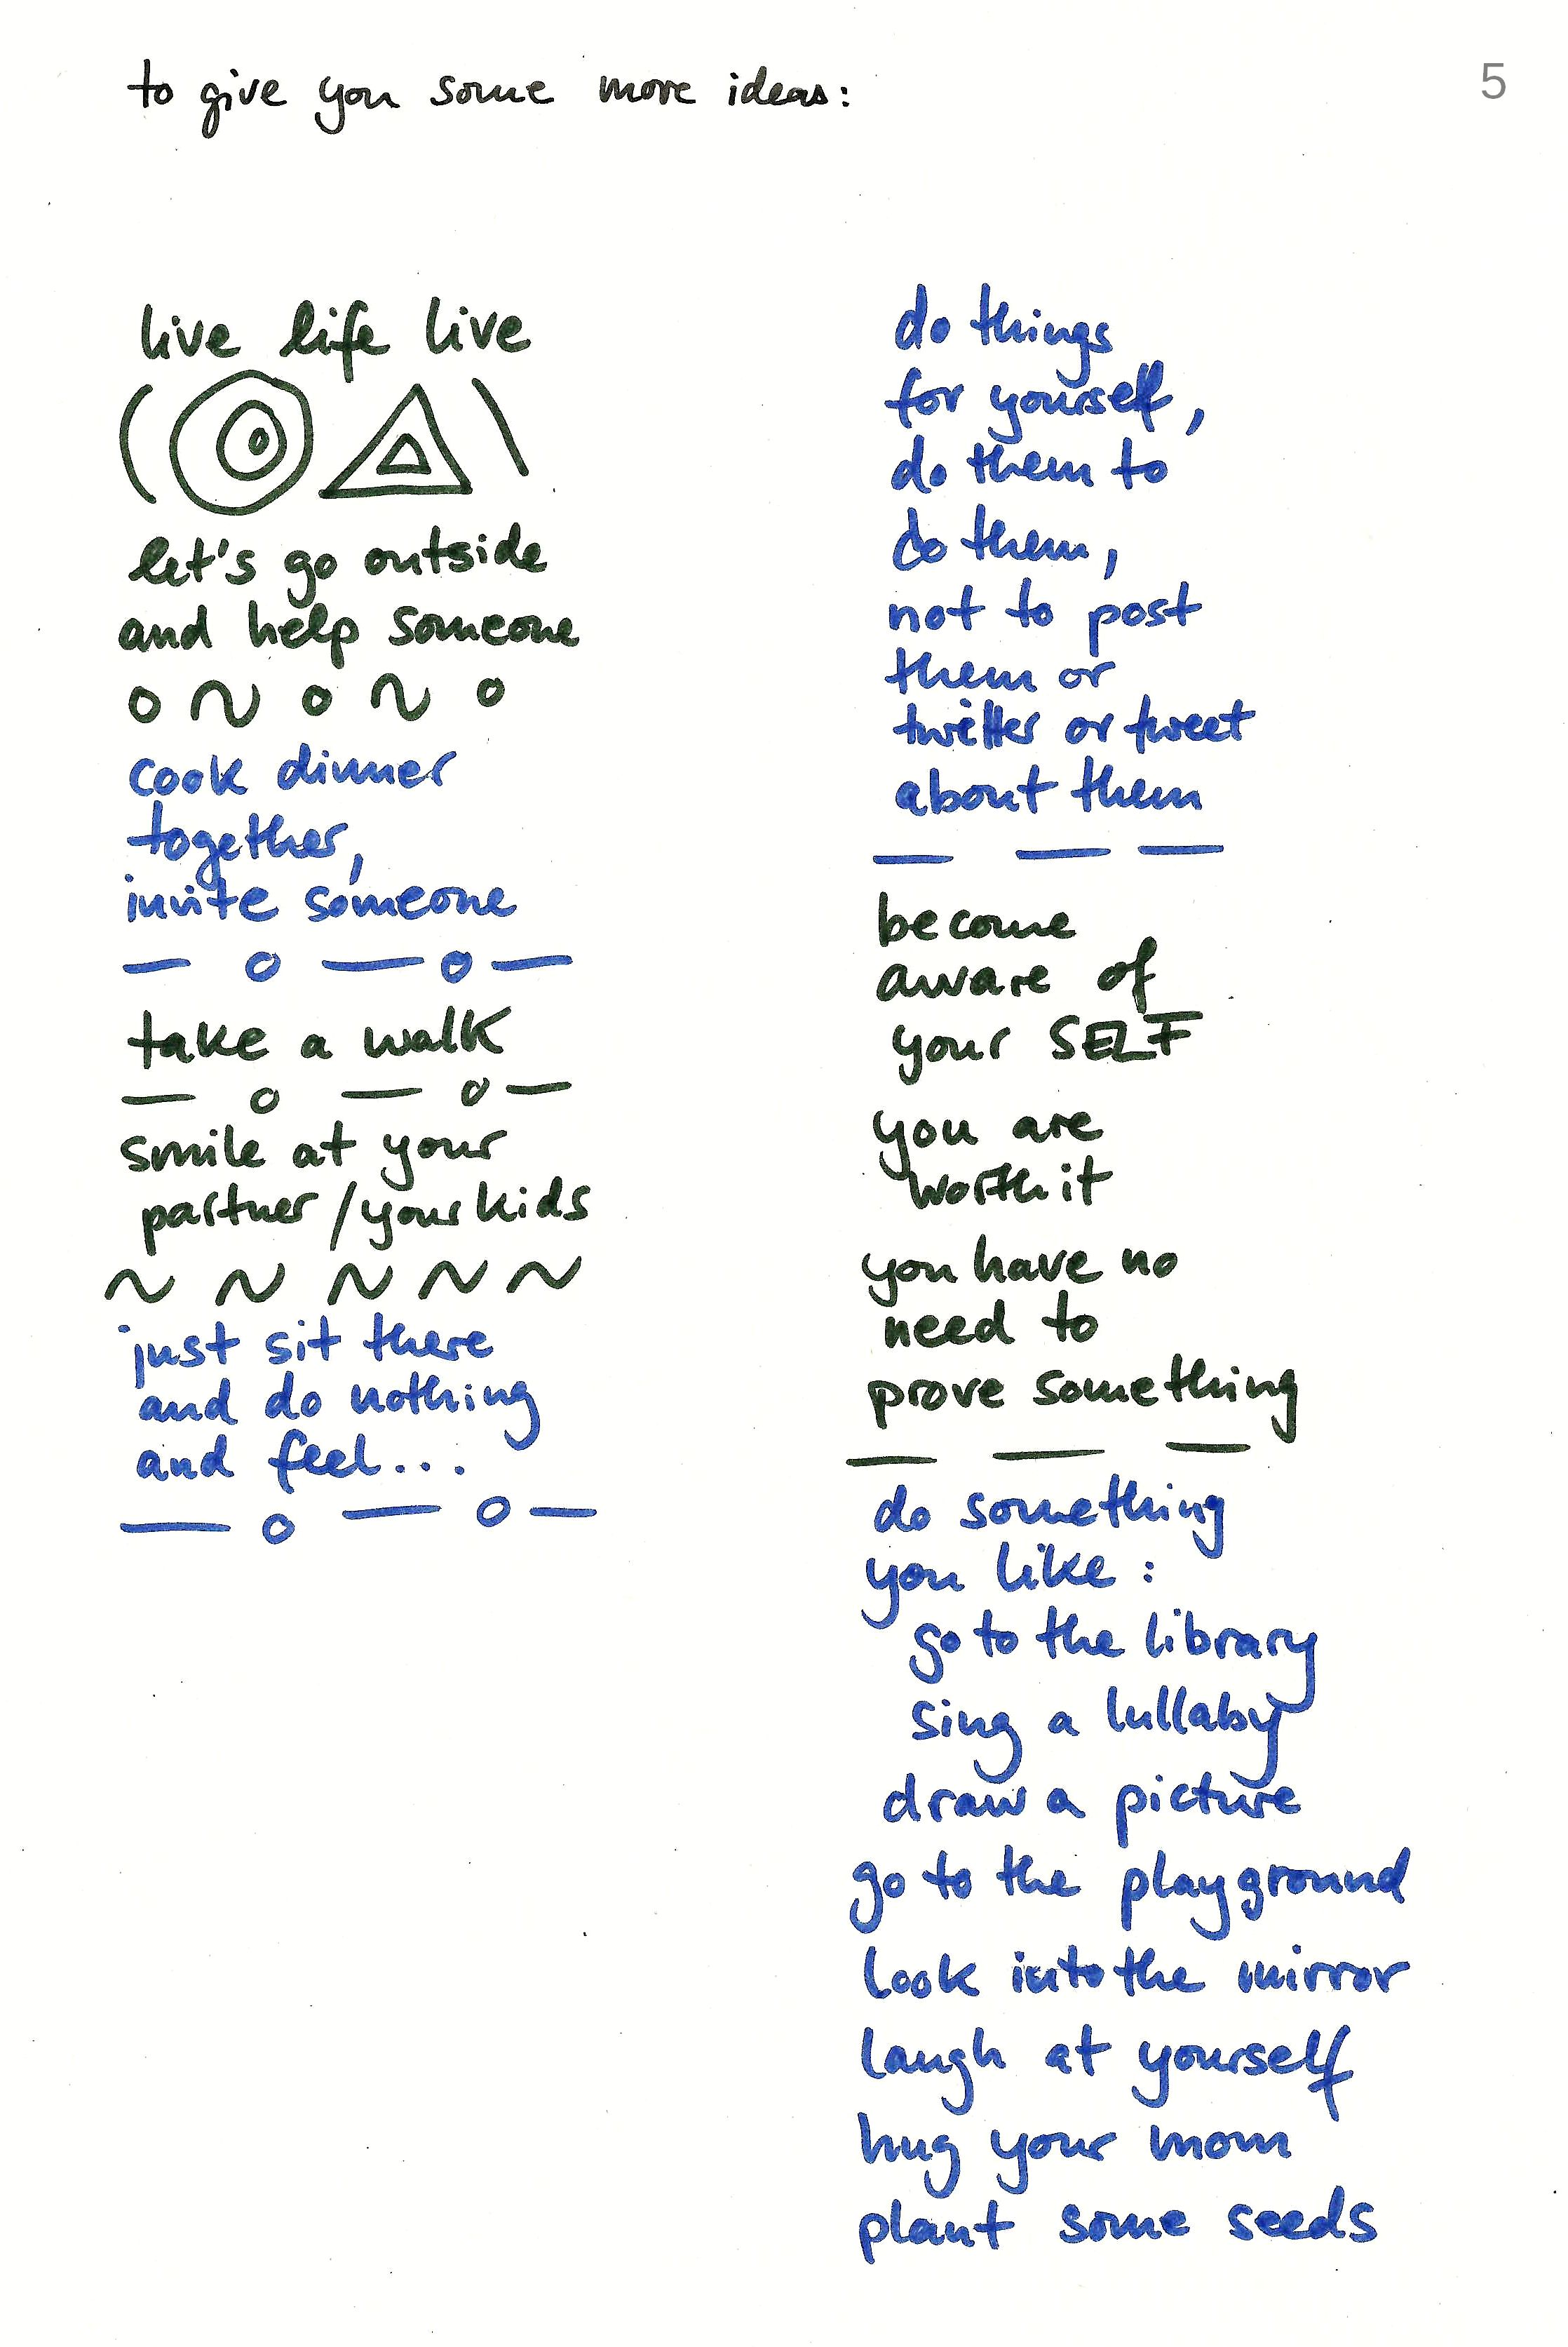 to give you some more ideas:
5
live life live
let's go outside
and help someone
cook dinner
together,
invite someone
take a walk
smile at your
partner / your kids
just sit there
and do nothing
and feel...
do things
for yourself,
do them to
do them,
not to post
them or
twitter or tweet
about them
become
aware of
your SELF
you are
worth it
you have no
need to
prove something
do something
you like:
go to the library
sing a lullaby
draw a picture
go to the playground
look into the mirror
laugh at yourself
hug your mom
plant some seeds